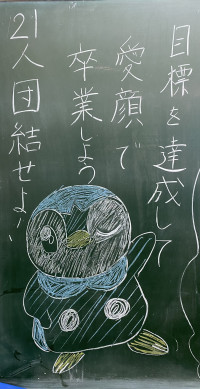 目標を達成して
愛顔で
卒業しよう
21人団結せよ!!